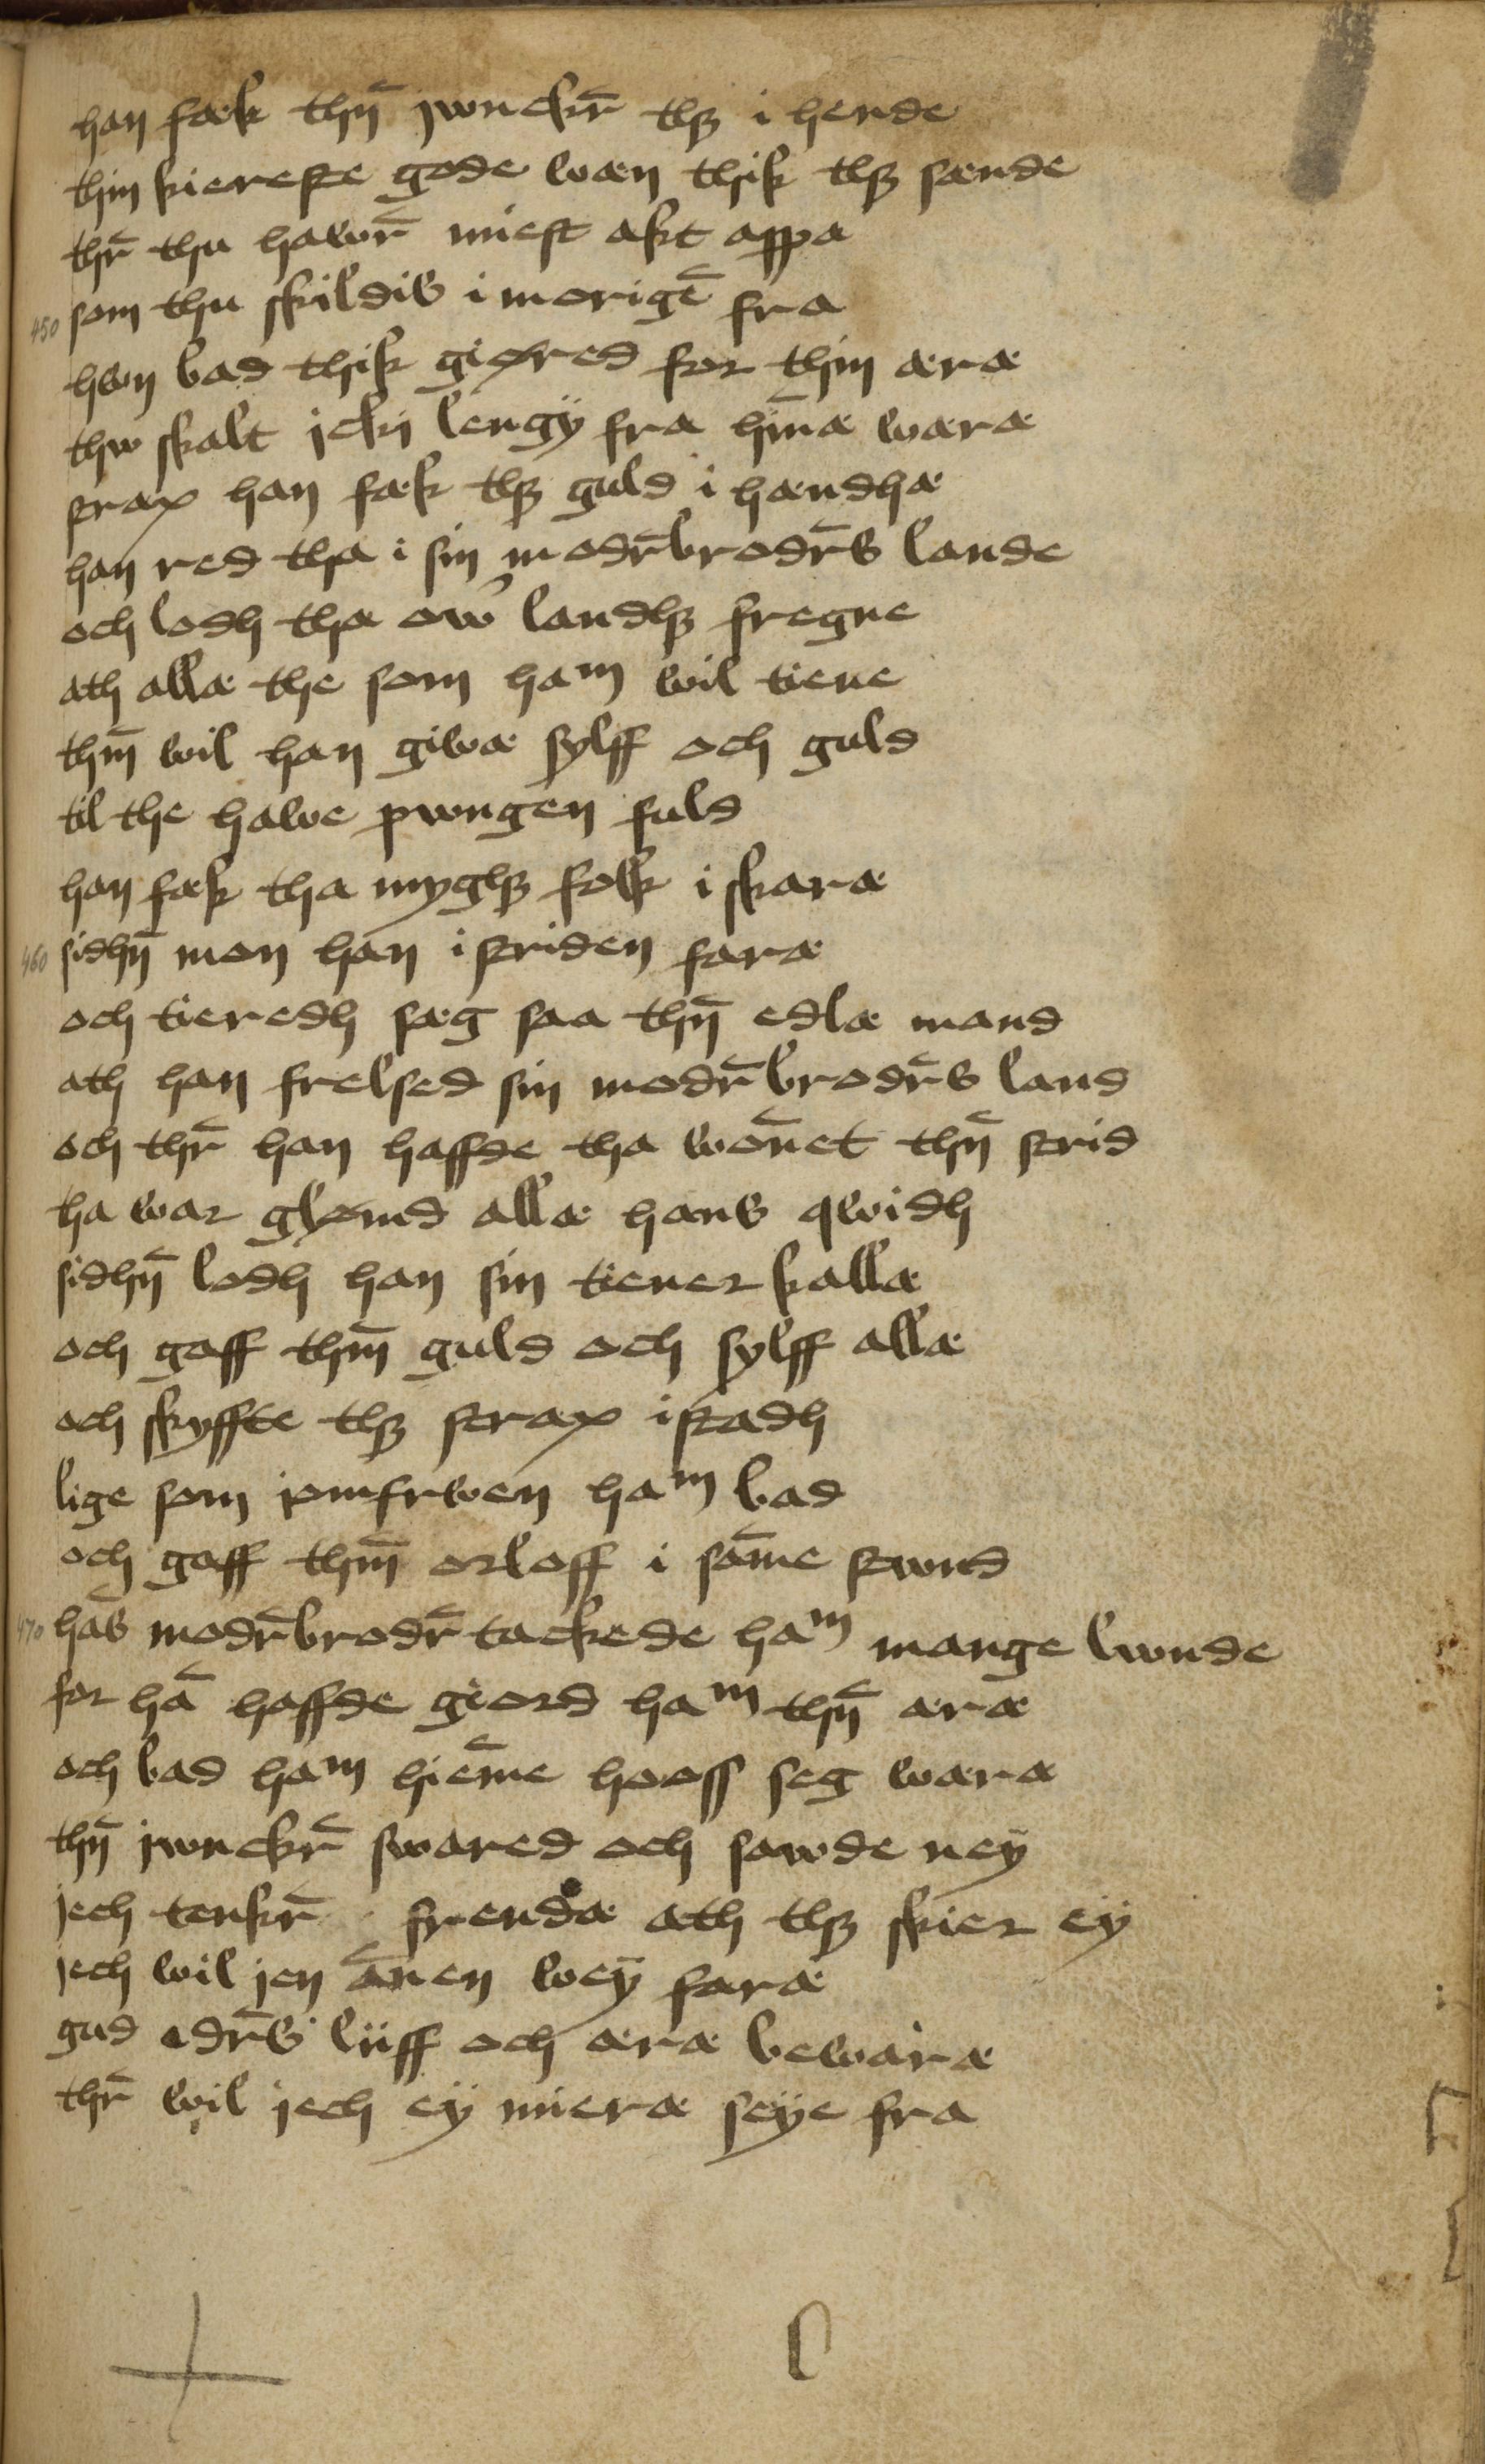 han fæk thn̄ jwnckr̄ thꝫ i hende
thin kiereste gode wæn thik thꝫ sænde
thr̄ thu hawr̄ miest akt appa
450 som thu skildis i morigē fra
hwn bad thik giøred for thin æræ
thw skalt jckj lengÿ fra hn̄næ wæræ
strax han fæk thꝫ guld i hændhæ
han red tha i sin modr̄brodr̄s lande
och lodh tha ow̄ landhꝫ fregne
ath allæ the som ham wil tiene
thm̄ wil han giwæ sylff och guld
til the hawe pwngen fuld
han fæk tha myghꝫ folk i skaræ
460 sidhn̄ mon han i striden faræ
och tieredh sæg saa thn̄ edlæ mand
ath han frelsed sin modr̄brodr̄s land
och thr̄ han haffde tha wōnet thn̄ strid
tha war glømd allæ hans qwidh
sidhn̄ lodh han sin tiener kallæ
och gaff thm̄ guld och sylff allæ
och skyffte thꝫ strax i stadh
lige som jomfrwen ham bad
och gaff thm̄ orloff i sām̄e stwnd
470 hās modr̄brodr̄ tackede ham mange lwnde
for hā haffde giord ham thn̄ æræ
och bad ham hiēme hooss seg wæræ
thn̄ jwnckr̄ swared och sawde neÿ
jech tenkr̄ frendæ ath thꝫ skier eÿ
jech wil jen ānen weÿ faræ
gud edr̄s lÿff och æræ bewaræ
thr̄ wil jech eÿ mieræ seÿe fra